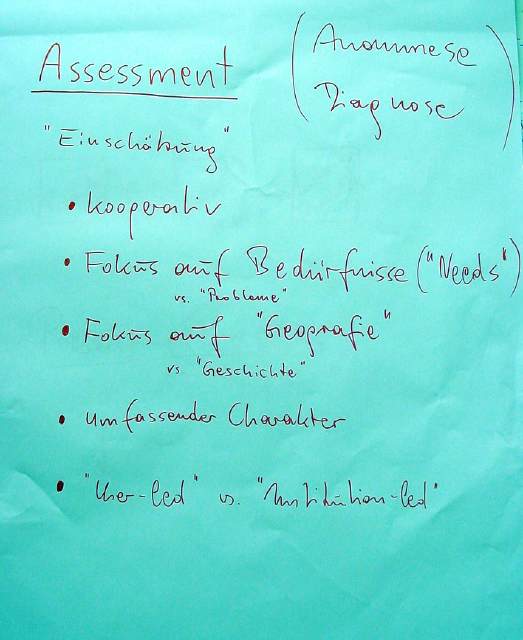 Assessment
(Anamnese
Diagnose)
"Einschätzung"
• kooperativ
• Fokus auf Bedürfnisse ("Needs")
vs. "Probleme"
• Fokus auf "Geografie"
vs "Geschichte"
• umfassender Charakter
• "User-led" vs. "Institution-led"